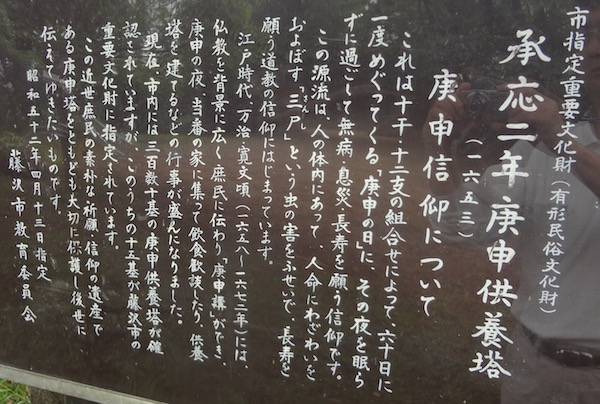 市指定重要文化財(有形民俗文化財)
承応二年庚申供養塔
(一六五三)
庚申信仰について
これは十干・十二支の組合せによって、六十日に
一度めぐってくる「庚申の日」に、その夜を眠ら
ずに過ごして無病息災・長寿を願う信仰です。
この源流は、人の体内にあって、人命にわざわいを
およぼす「三尸」という虫の害をふせいで、長寿を
さんし
願う道教の信仰にはじまっています。
江戸時代、万治・寛文頃(一六五八〜一六七二年)には、
仏教を背景に広く庶民に伝わり「庚申講」ができ、
庚申の夜、当番の家に集って飲食歓談したり、供養
塔を建てるなどの行事が盛んになりました。
現在、市内には三百数十基の庚申供養塔が確
認されていますが、このうちの十五基が藤沢市の
重要文化財に指定されています。
この近世庶民の素朴な祈願、信仰の遺産で
ある庚申塔をともども大切に保護し後世に
伝えてゆきたいものです。
昭和五十二年四月十三日指定
藤沢市教育委員会